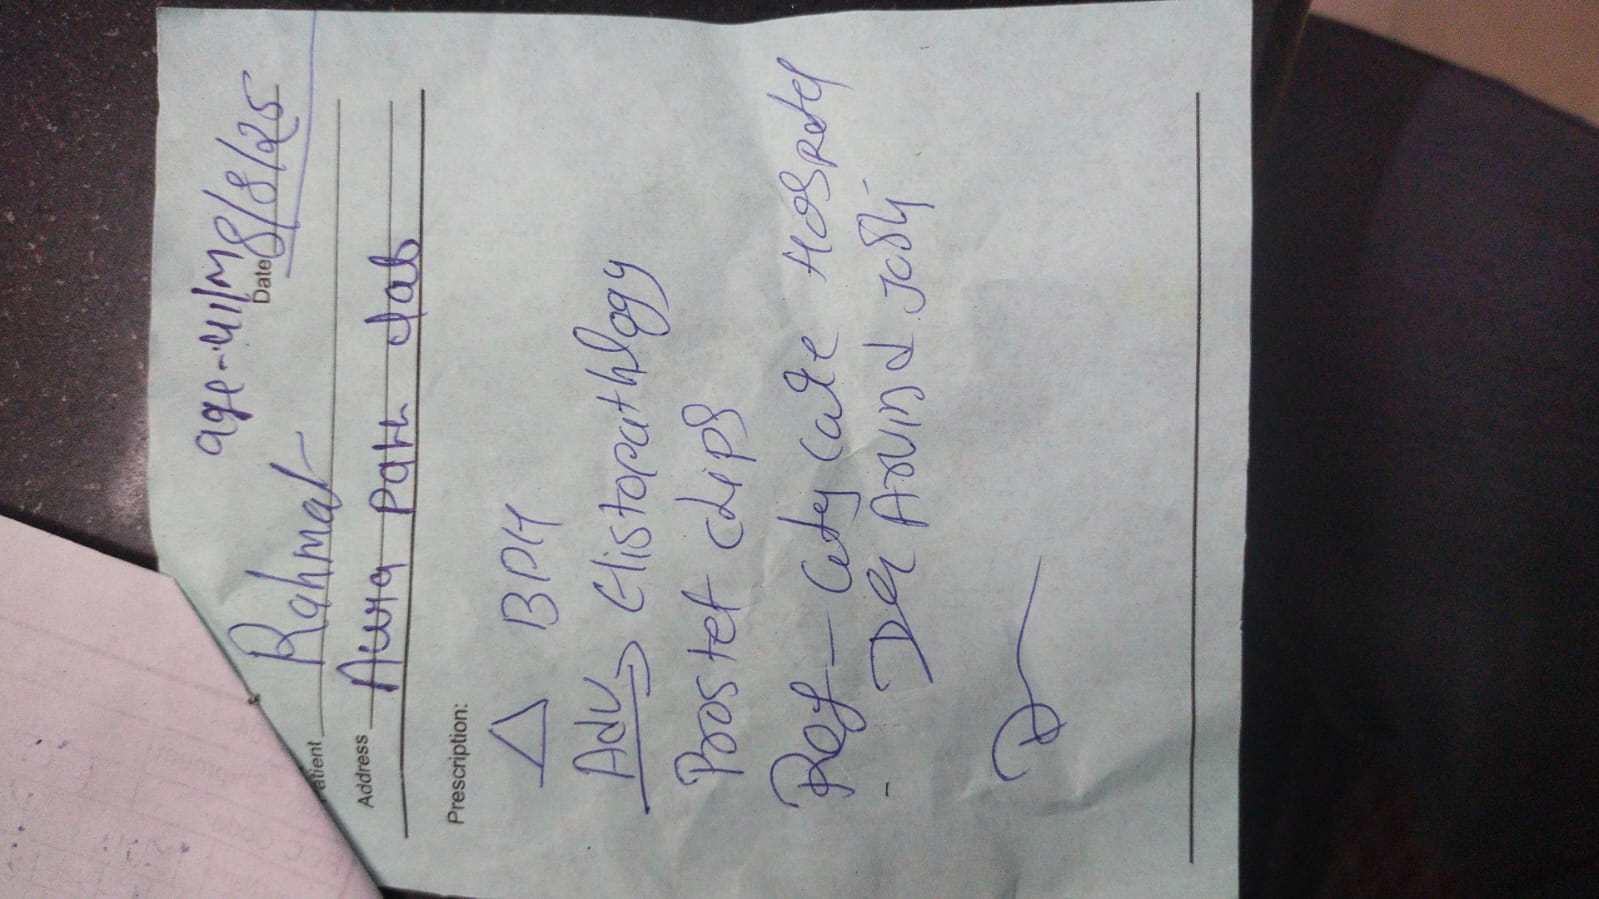 age-41/M
Patient Rahmat Date 8/8/25
Address Aura path lab
Prescription:
△ BPH
Adv Histopathlogy
Prostet chips
Ref - City Care Hospital
- Dr Arvind Joshi